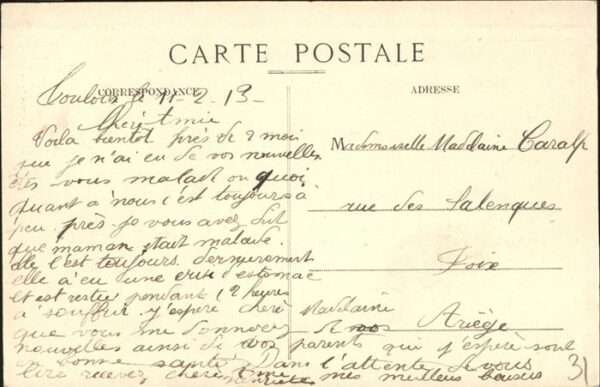 CARTE POSTALE
CORRESPONDANCE
ADRESSE
Toulouse le 11-2-13-
Chère Amie
Voila bientot près de 2 moi
que je n'ai eu de vos nouvelles
êtes vous malade ou quoi,
quant à nous c'est toujours à
peu près. je vous avez dit
que maman était malade.
elle l'est toujours. dernierement
elle a eu une crise d'estomac
et est restée pendant 12 heures
à souffrir. j'espère chère Madelaine
que vous me donnerez de vos
nouvelles ainsi de vos parents qui j'espère sont
en bonne santé. Dans l'attente de vous
lire recevez chère amie mes meilleurs baisers
Mademoiselle Madelaine Caralp
rue des Salenques
Foix
Ariège
31